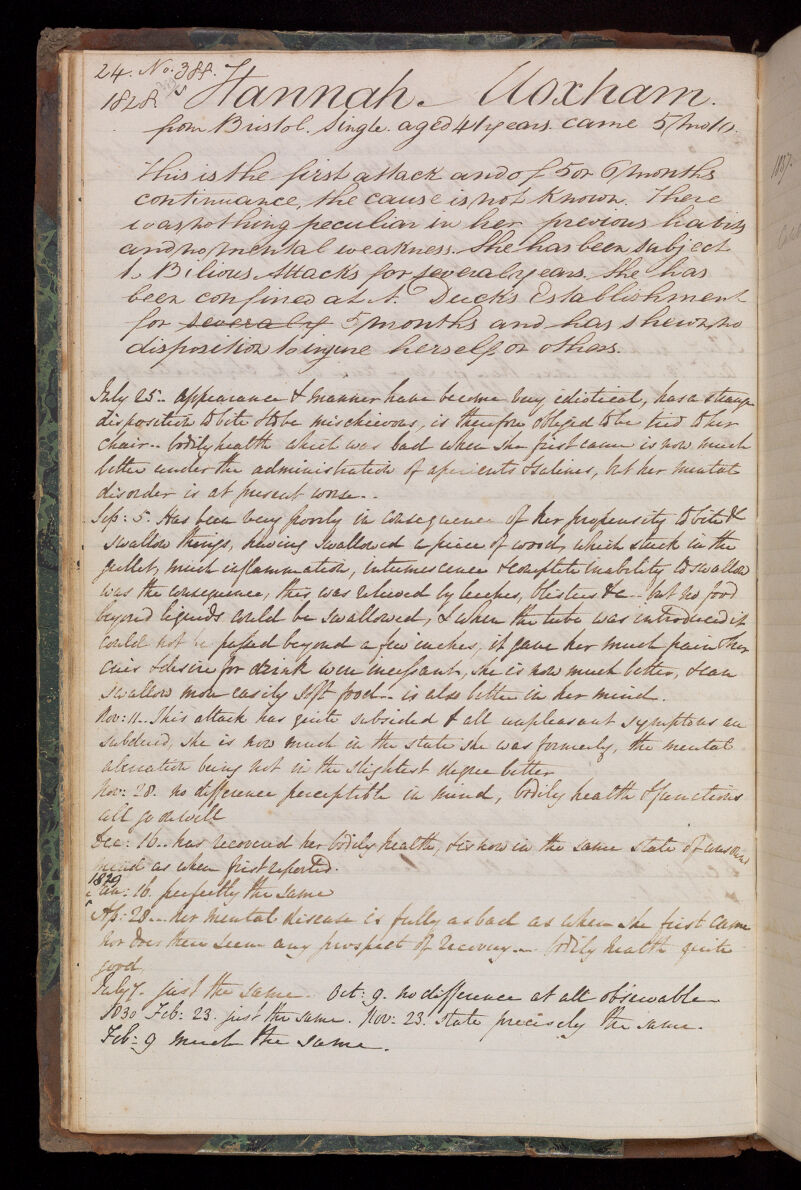 24. No. 388. Hannah. Uoxham.
1828.
from Bristol. Single. aged 41 years. came 5/mo 10.
This is the first attack and of 5 or 6 months
continuance, the cause is not known. There
was nothing peculiar in her previous habits
and no mental weakness. She has been subject
to Bilious Attacks for several years. She has
been confined at N. Duck's Establishment
for severaly 5 months and has shewn no
disposition to injure herself or others.
July 25.. Appearance & manner have become very idiotical, has a strange
disposition to bite & to be mischievous, is therefore obliged to be tied to her
chair.. bodily health which was bad when she first came is now much
better under the administration of aperients & salines, but her mental
disorder is at present worse..
Sep: 5. Has been very poorly in consequence of her propensity to bite &
swallow things, having swallowed a piece of wood, which stuck in the
gullet, much inflammation, intumescence & complete inability to swallow
was the consequence, this was relieved by leeches, blisters &c.. but no food
beyond liquids could be swallowed, & when the tube was introduced it
could not be passed beyond a few inches, it gave her much pain & her
cries & desire for drink were incessant, she is now much better, & can
swallow more easily soft food.. is also better in her mind.
Nov: 11. This attack has quite subsided & all unpleasant symptoms are
subdued, she is now much in the state she was formerly, the mental
alienation being not in the slightest degree better
Nov: 28. no difference perceptible in mind, bodily health & functions
all go on well
Dec: 16.. has recovered her bodily health, & is now in the same state of unsound
mind as when first reported.
1829
Jan: 16. perfectly the same
Ap: 28... her mental disease is fully as bad as when she first came
nor does there seem any prospect of recovery... bodily health quite
good.
July 7. just the same. Oct: 9. no difference at all observable
1830 Feb: 23. just the same. Nov: 23. state precisely the same.
Feb: 9 much the same.
1837.